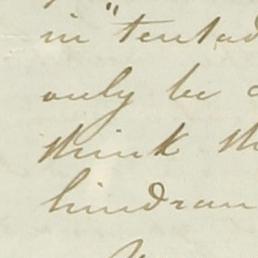 in "tentad
only be
think th
hindran